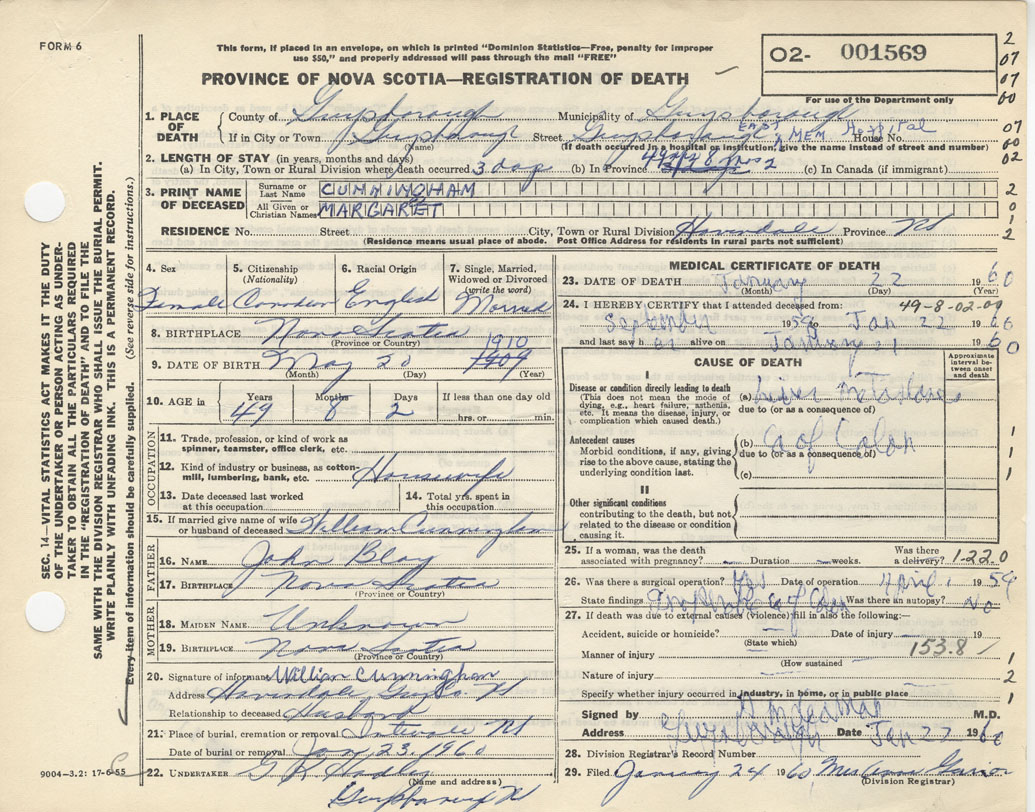 FORM 6
This form, if placed in an envelope, on which is printed "Dominion Statistics—Free, penalty for improper
use $50," and properly addressed will pass through the mail "FREE"
PROVINCE OF NOVA SCOTIA—REGISTRATION OF DEATH
O2- 001569
For use of the Department only
2
07
07
00
07
00
02
2
0
1
2
1. PLACE OF DEATH
County of Guysborough Municipality of Guysborough
If in City or Town Guysborough Street Guysborough EAST. MEM Hospital House No.
(Name) (If death occurred in a hospital or institution, give the name instead of street and number)
2. LENGTH OF STAY (in years, months and days)
(a) In City, Town or Rural Division where death occurred 3 days (b) In Province (c) In Canada (if immigrant)
3. PRINT NAME OF DECEASED
Surname or Last Name CUNNINGHAM
All Given or Christian Names MARGARET
RESIDENCE No. Street City, Town or Rural Division Province NS
(Residence means usual place of abode. Post Office Address for residents in rural parts not sufficient)
4. Sex Female
5. Citizenship (Nationality) Canadian
6. Racial Origin English
7. Single, Married, Widowed or Divorced (write the word) Married
8. BIRTHPLACE Nova Scotia
(Province or Country)
9. DATE OF BIRTH May 20 1909 1910
(Month) (Day) (Year)
10. AGE in Years 49 Months 8 Days 2 If less than one day old hrs. or min.
OCCUPATION
11. Trade, profession, or kind of work as spinner, teamster, office clerk, etc.
12. Kind of industry or business, as cotton-mill, lumbering, bank, etc. Housewife
13. Date deceased last worked at this occupation
14. Total yrs. spent in this occupation
15. If married give name of wife or husband of deceased William Cunningham
FATHER
16. NAME John
17. BIRTHPLACE Nova Scotia
(Province or Country)
MOTHER
18. MAIDEN NAME Unknown
19. BIRTHPLACE Nova Scotia
(Province or Country)
20. Signature of informant William Cunningham
Address Guys. Co. NS
Relationship to deceased Husband
21. Place of burial, cremation or removal Intervale NS
Date of burial or removal Jan 23, 1960
22. UNDERTAKER
(Name and address)
Guysborough NS
MEDICAL CERTIFICATE OF DEATH
23. DATE OF DEATH January 22 1960
(Month) (Day) (Year)
24. I HEREBY CERTIFY that I attended deceased from: 49-8-02-09
September 1959 to Jan 22 1960
and last saw h er alive on January 21 1960
CAUSE OF DEATH
Approximate interval between onset and death
I
Disease or condition directly leading to death
(This does not mean the mode of dying, e.g., heart failure, asthenia, etc. It means the disease, injury, or complication which caused death.)
(a) Liver Metastases
due to (or as a consequence of)
Antecedent causes
Morbid conditions, if any, giving rise to the above cause, stating the underlying condition last.
(b) Ca of Colon
due to (or as a consequence of)
(c)
1
1
1
II
Other significant conditions
contributing to the death, but not related to the disease or condition causing it.
25. If a woman, was the death associated with pregnancy? — Duration — weeks. Was there a delivery? 1220
26. Was there a surgical operation? Yes Date of operation April 1 1959
State findings Was there an autopsy? No
27. If death was due to external causes (violence) fill in also the following:—
Accident, suicide or homicide? Date of injury 19
(State which)
Manner of injury 153.8
(How sustained
Nature of injury
1
2
1
Specify whether injury occurred in industry, in home, or in public place
Signed by M.D.
Address Guysborough Date Jan 22 1960
28. Division Registrar's Record Number
29. Filed January 24 1960
(Division Registrar)
SEC. 14—VITAL STATISTICS ACT MAKES IT THE DUTY
OF THE UNDERTAKER OR PERSON ACTING AS UNDER-
TAKER TO OBTAIN ALL THE PARTICULARS REQUIRED
IN THE "REGISTRATION OF DEATH" AND TO FILE THE
SAME WITH THE DIVISION REGISTRAR WHO SHALL ISSUE THE BURIAL PERMIT.
WRITE PLAINLY WITH UNFADING INK. THIS IS A PERMANENT RECORD.
Every item of information should be carefully supplied. (See reverse side for instructions.)
9004—3.2: 17-6-55